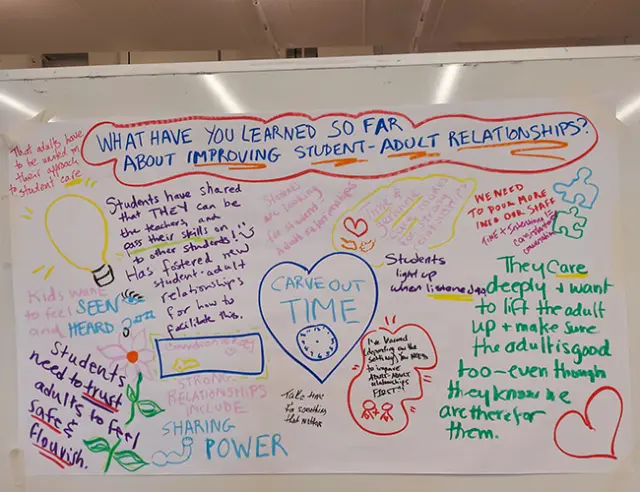 WHAT HAVE YOU LEARNED SO FAR
ABOUT IMPROVING STUDENT-ADULT RELATIONSHIPS?
That adults have
to be in
their approach
to student care
Students have shared
that THEY can be
the teachers, and
pass their skills on
to other students!
Has fostered new
student-adult
relationships
for how to
facilitate this.
Students
are looking
for student-
adult relationships
Time
relationships
WE NEED
TO POUR MORE
INTO OUR STAFF
TIME +
Students
light up
when listened to
They care
deeply + want
to lift the adult
up + make sure
the adult is good
too-even though
they know we
are there for
them.
Kids want
to feel
SEEN
and HEARD
CARVE OUT
TIME
Students
need to trust
adults to feel
safe &
flourish.
STRONG
RELATIONSHIPS
INCLUDE
SHARING
POWER
Take time
for something
that matters
I've learned
depending on the
setting, you NEED
to improve
ADULT-ADULT
relationships
FIRST!